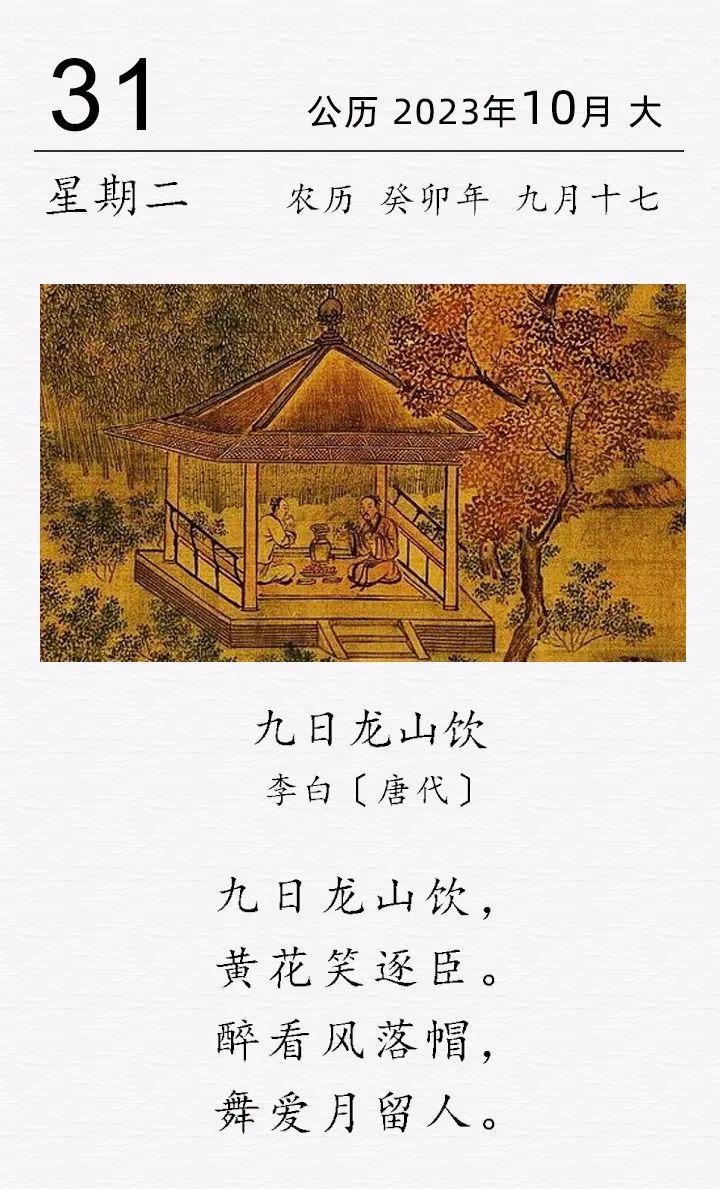 31
公历 2023年10月 大
星期二
农历 癸卯年 九月十七
九日龙山饮
李白〔唐代〕
九日龙山饮，
黄花笑逐臣。
醉看风落帽，
舞爱月留人。